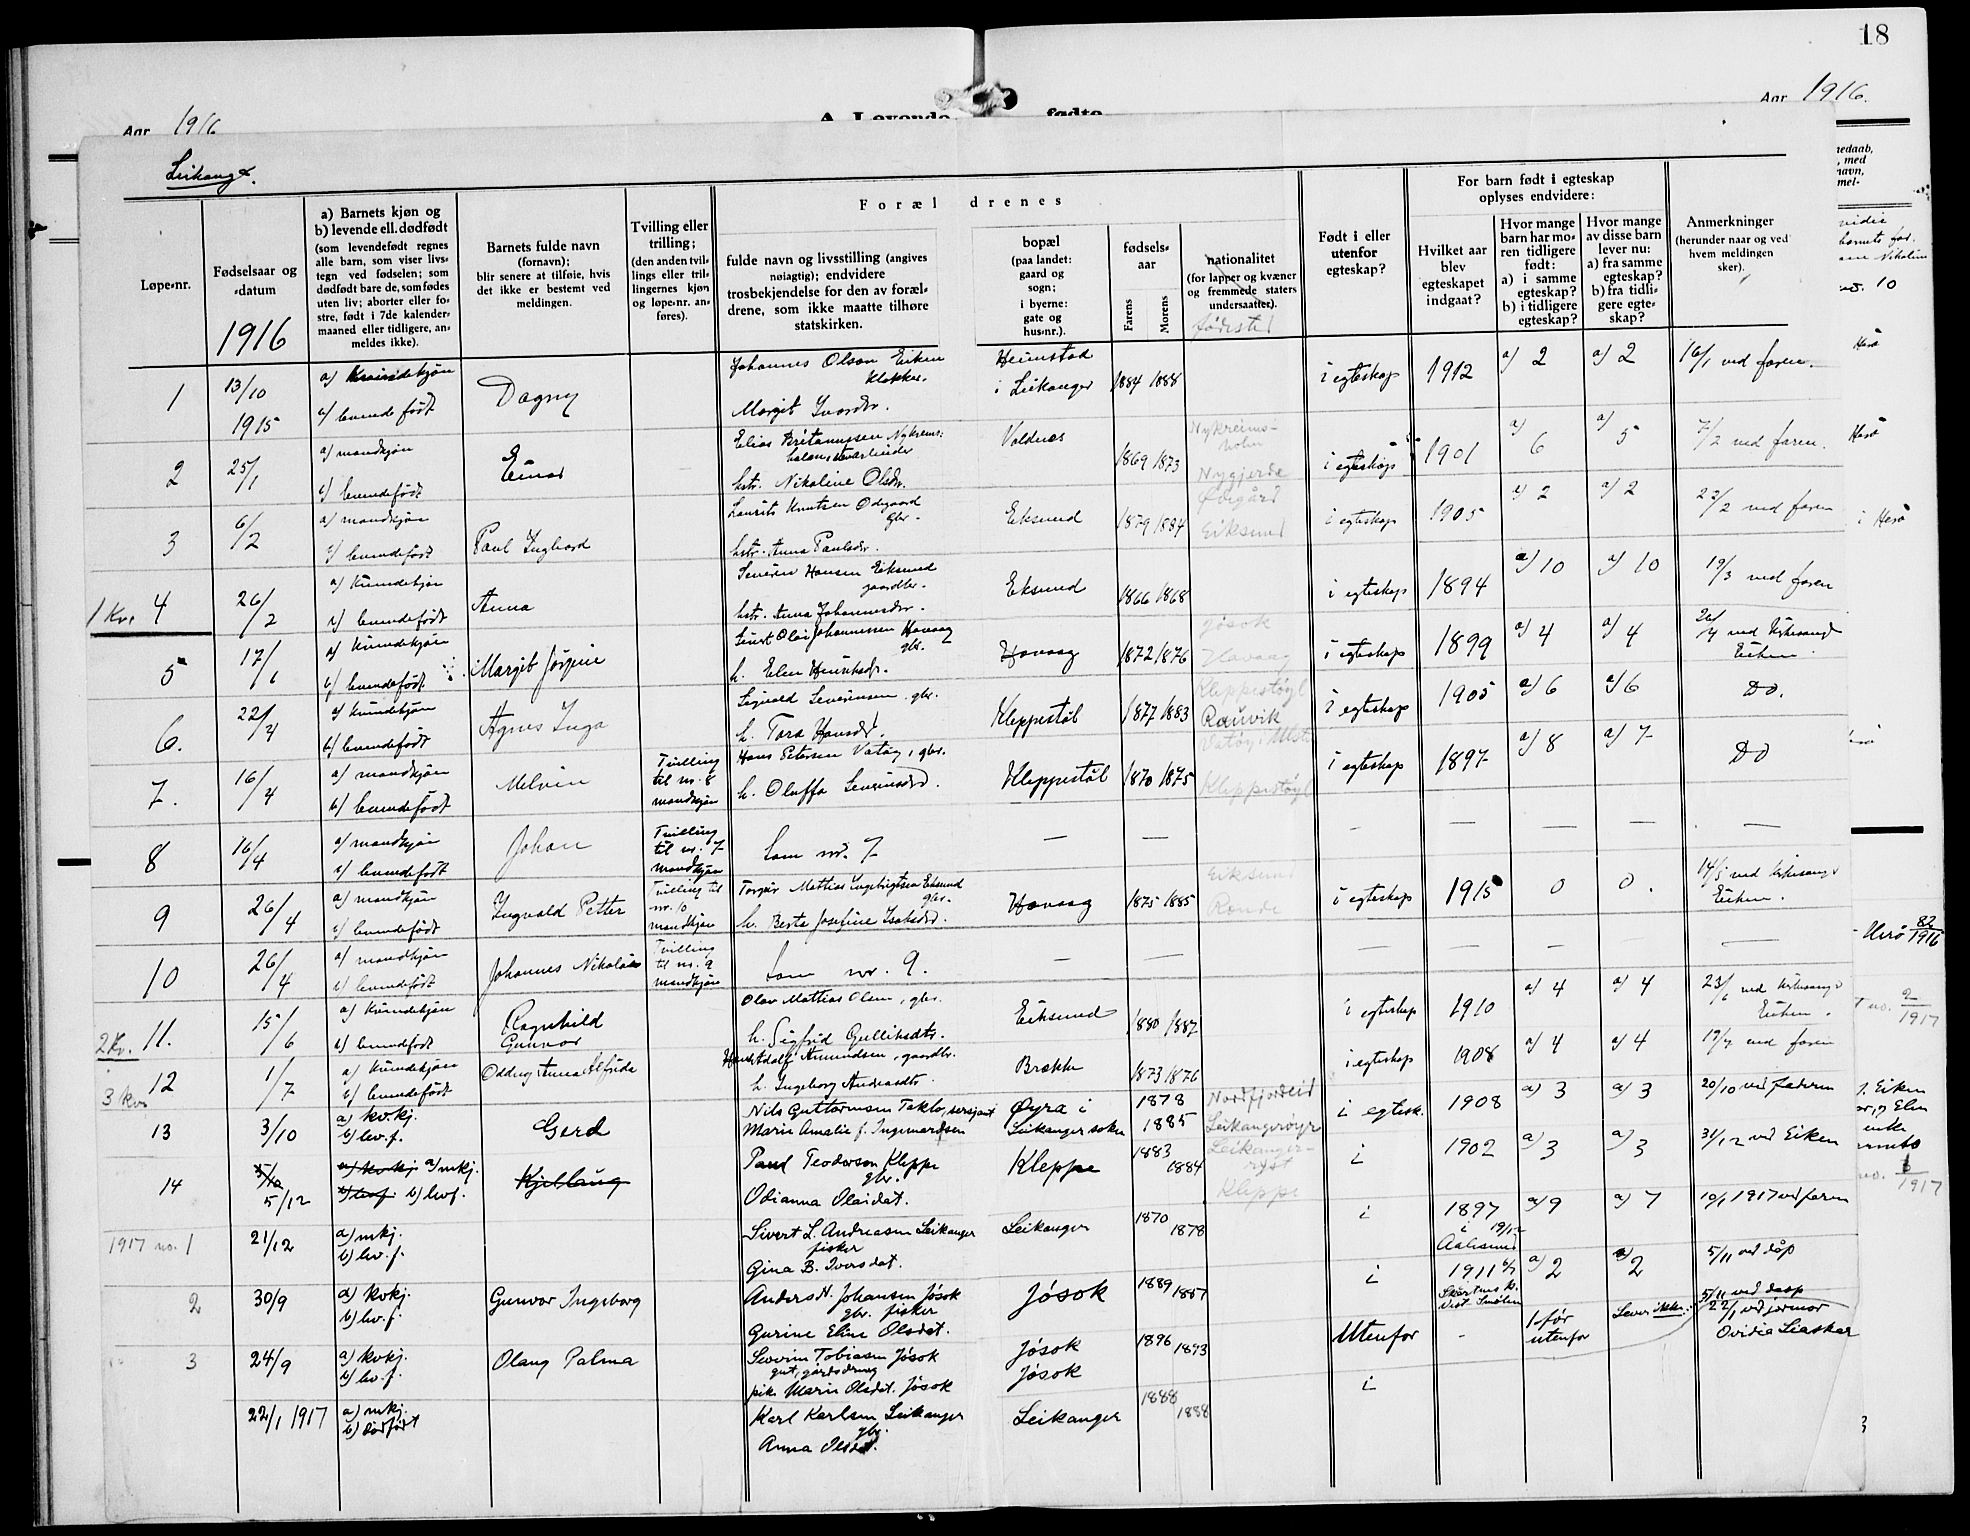 18
Aar 1916
Aar 1916.
A. Levende fødte
Leikang
nedaab,
, med
navn,
mel-
Løpe-nr.
Fødselsaar og
-datum
1916
a) Barnets kjøn og
b) levende ell. dødfødt
(som levendefødt regnes
alle barn, som viser livs-
tegn ved fødselen; som
dødfødt bare de, som fødes
uten liv; aborter eller fo-
stre, født i 7de kalender-
maaned eller tidligere, an-
meldes ikke).
Barnets fulde navn
(fornavn);
blir senere at tilføie, hvis
det ikke er bestemt ved
meldingen.
Tvilling eller
trilling;
(den anden tvil-
lings eller tril-
lingernes kjøn
og løpe-nr. an-
føres).
Foræl drenes
fulde navn og livsstilling (angives
nøiagtig); endvidere
trosbekjendelse for den av foræl-
drene, som ikke maatte tilhøre
statskirken.
bopæl
(paa landet:
gaard og
sogn;
i byerne:
gate og
hus-nr.).
fødsels-
aar
Farens
Morens
nationalitet
(for lapper og kvæner
og fremmede staters
undersaatter).
fødested
Født i eller
utenfor
egteskap?
For barn født i egteskap
oplyses endvidere:
Hvilket aar
blev
egteskapet
indgaat?
Hvor mange
barn har mo-
ren tidligere
født:
a) i samme
egteskap?
b) i tidligere
egteskap?
Hvor mange
av disse barn
lever nu:
a) fra samme
egteskap?
b) fra tidli-
gere egte-
skap?
Anmerkninger
(herunder naar og ved
hvem meldingen
sker).
1 13/10 1915 a) Kvindekjøn b) levende født Dagny Johannes Olson Eiken Klokker. Margit Ivarsdr. Heimstad i Leikanger 1884 1888 i egteskap 1912 a) 2 a) 2 16/1 ved faren.
2 25/1 a) mandkjøn b) levendefødt Einar Elias Britanussen hstr. Nikoline Olsdr. Voldnes 1869 1873 Nykreims-holm Nygjerde i egteskap 1901 a) 6 a) 5 7/2 ved faren.
3 6/2 a) mandkjøn b) levendefødt Paul Ingvard Laurits Knutsen Ødegaard gbr. hstr. Anna Paulsdr. Eksund 1879 1884 Øvigård Eiksund i egteskap 1905 a) 2 a) 2 22/2 ved faren
1 Kv. 4 26/2 a) Kvindekjøn b) levendefødt Anna Severin Hansen Eiksund gaardbr. hstr. Anna Johannesdr. Eksund 1866 1868 i egteskap 1894 a) 10 a) 10 19/3 ved faren
5 17/1 a) Kvindekjøn b) levendefødt Margit Jørgine Einert Olai Johannessen Havaag gbr. h. Elen Henriksdr. Havaag 1872 1876 Jøsok Havaag i egteskap 1899 a) 4 a) 4 26/4 ved kirkesang Eiken
6. 22/4 a) kvindekjøn b) levendefødt Agnes Inga Sigvald Severinsen gbr. h. Tora Hansdr. Kleppestøl 1877 1883 Kleppestøyl Rauvik i egteskap 1905 a) 6 a) 6 Do.
7. 16/4 a) mandkjøn b) levendefødt Melvin Tvilling til nr. 8 mandkjøn Hans Petersen Vatøy, gbr. h. Oluffa Severinsdr. Kleppestøl 1870 1875 Vatøy, Ulst. Kleppestøyl i egteskap 1897 a) 8 a) 7 Do
8 16/4 a) mandkjøn b) levendefødt Johan Tvilling til nr. 7 mandkjøn Som nr. 7 — — — — — — —
9 26/4 a) mandkjøn b) levendefødt Ingvald Petter Tvilling til nr. 10 mandkjøn Torgeir Mattias Ingebrigtsen Eksund gbr. h. Berta Josefine Isaksdr. Havaag 1875 1885 Eiksund Rande i egteskap 1915 0 0. 14/5 ved kirkesang Eiken.
10 26/4 a) mandkjøn b) levendefødt Johannes Nikolai Tvilling til nr. 9 mandkjøn Som nr. 9. — — — — — —
2 Kv. 11. 15/6 a) Kvindekjøn b) levendefødt Ragnhild Gunvor Olav Mattias Olsen, gbr. h. Sigfrid Gulliksdtr. Eiksund 1880 1887 i egteskap 1910 a) 4 a) 4 23/6 ved kirkesang Eiken.
12 1/7 a) Kvindekjøn b) levendefødt Oddny Anna Alfrida Amundsen, gaardbr. h. Ingeborg Andreasdtr. Brække 1873 1876 i egteskap 1908 a) 4 a) 4 19/7 ved faren
3 Kv. 13 3/10 a) kvkj. b) lev. f. Gerd Nils Guttormsen Taklo, sersjant Marie Amalie f. Ingemardsen Øyra i Leikanger sokn 1878 1885 Nordfjordeid Leikangerøyr i egtesk. 1908 a) 3 a) 3 20/10 ved faderen
14 3/10 5/12 a) kvkj a) mkj. b) levf b) levf. Kjellaug Paul Teodorson Kleppe gbr. Odianna Olaidat. Kleppe 1883 1884 Leikanger- Kleppe i 1902 a) 3 a) 3 31/12 ved Eiken
1917 no. 1 21/12 a) mkj. b) lev. f. Sivert L. Andreasen Leikanger fisker Gina B. Iversdat. Leikanger 1870 1878 i 1897 i Aalesund a) 9 a) 7 10/1 1917 ved faren
2 30/9 a) kvkj. b) lev. f. Gunvor Ingeborg Anders N. Johansen Jøsok gbr. fisker Gurine Eline Olsdat. Jøsok 1889 1887 i 1911 a) 2 a) 2 5/11 ved dåp
3 24/9 a) kvkj. b) lev. f. Olaug Palma Severin Tobiasen Jøsok gut, gårdsdreng pik. Marie Olsdat. Jøsok Jøsok Jøsok 1896 1893 Utenfor - 1 før utenfor Lever ikke 5/11 ved daap 22/1 ved jormor Ovidia Liaskar
22/1 1917 a) mkj. b) dødfødt Karl Karlsen Leikanger gbr. Anna Olsdat. Leikanger 1888 1888 i
no. 10
Herø
Herø
i Herø
Herø 82/1916
no. 2/1917
Eiken
no. /1917